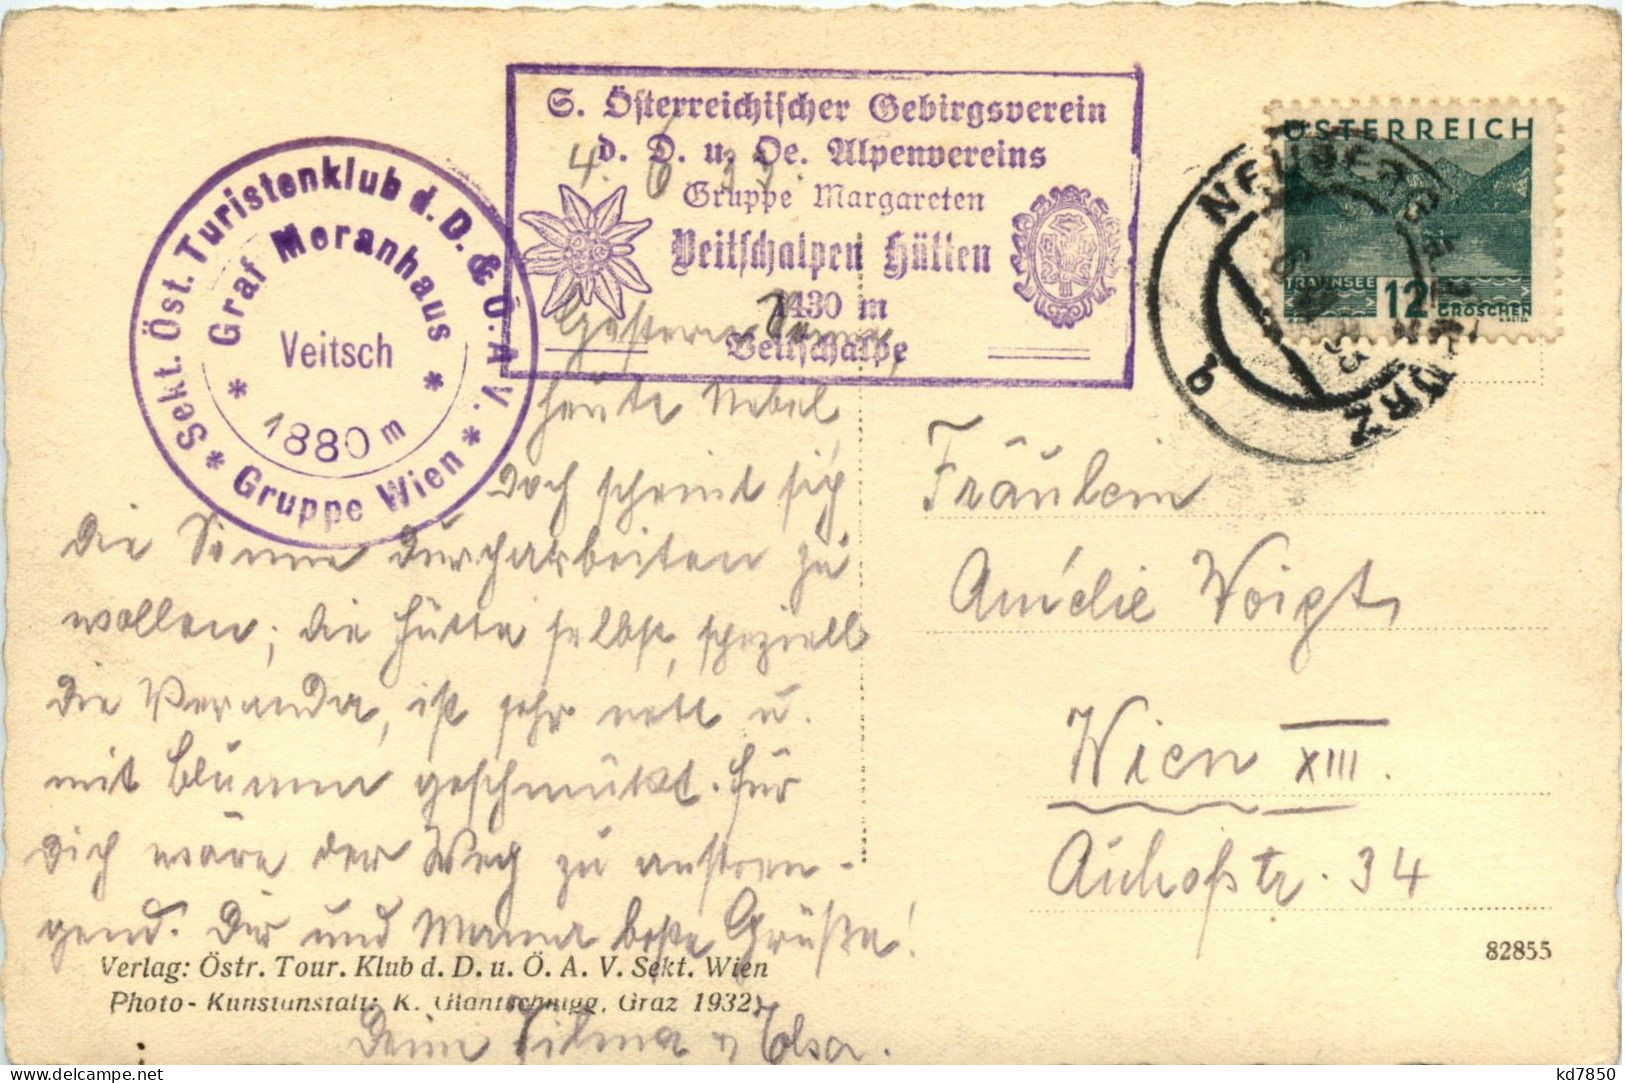 S. Österreichischer Gebirgsverein
d. D. u. Oe. Alpenvereins
Gruppe Margareten
Veitschalpen Hütten
1430 m
Veitschalpe
4. 6. 33.
Sekt. Öst. Turistenklub d. D. & Ö. A. V. *
* Gruppe Wien *
* Graf Meranhaus *
Veitsch
1880 m
ÖSTERREICH
TRAUNSEE
12 GROSCHEN
NEUBERG a.d. MÜRZ
b
Gestern Sonne,
heute Nebel
doch scheint sich
die Sonne durcharbeiten zu
wollen; die Hütte selbst, speziell
die Veranda, ist sehr nett u.
mit Blumen geschmückt. Für
Dich wäre der Weg zu anstren-
gend. Dir und Mama beste Grüße!
Deine Vilma u Elsa.
Fräulein
Amélie Voigt,
Wien XIII.
Auhofstr. 34
82855
Verlag: Östr. Tour. Klub d. D. u. Ö. A. V. Sekt. Wien
Photo-Kunstanstalt: K. Glantschnigg, Graz 1932
kd7850